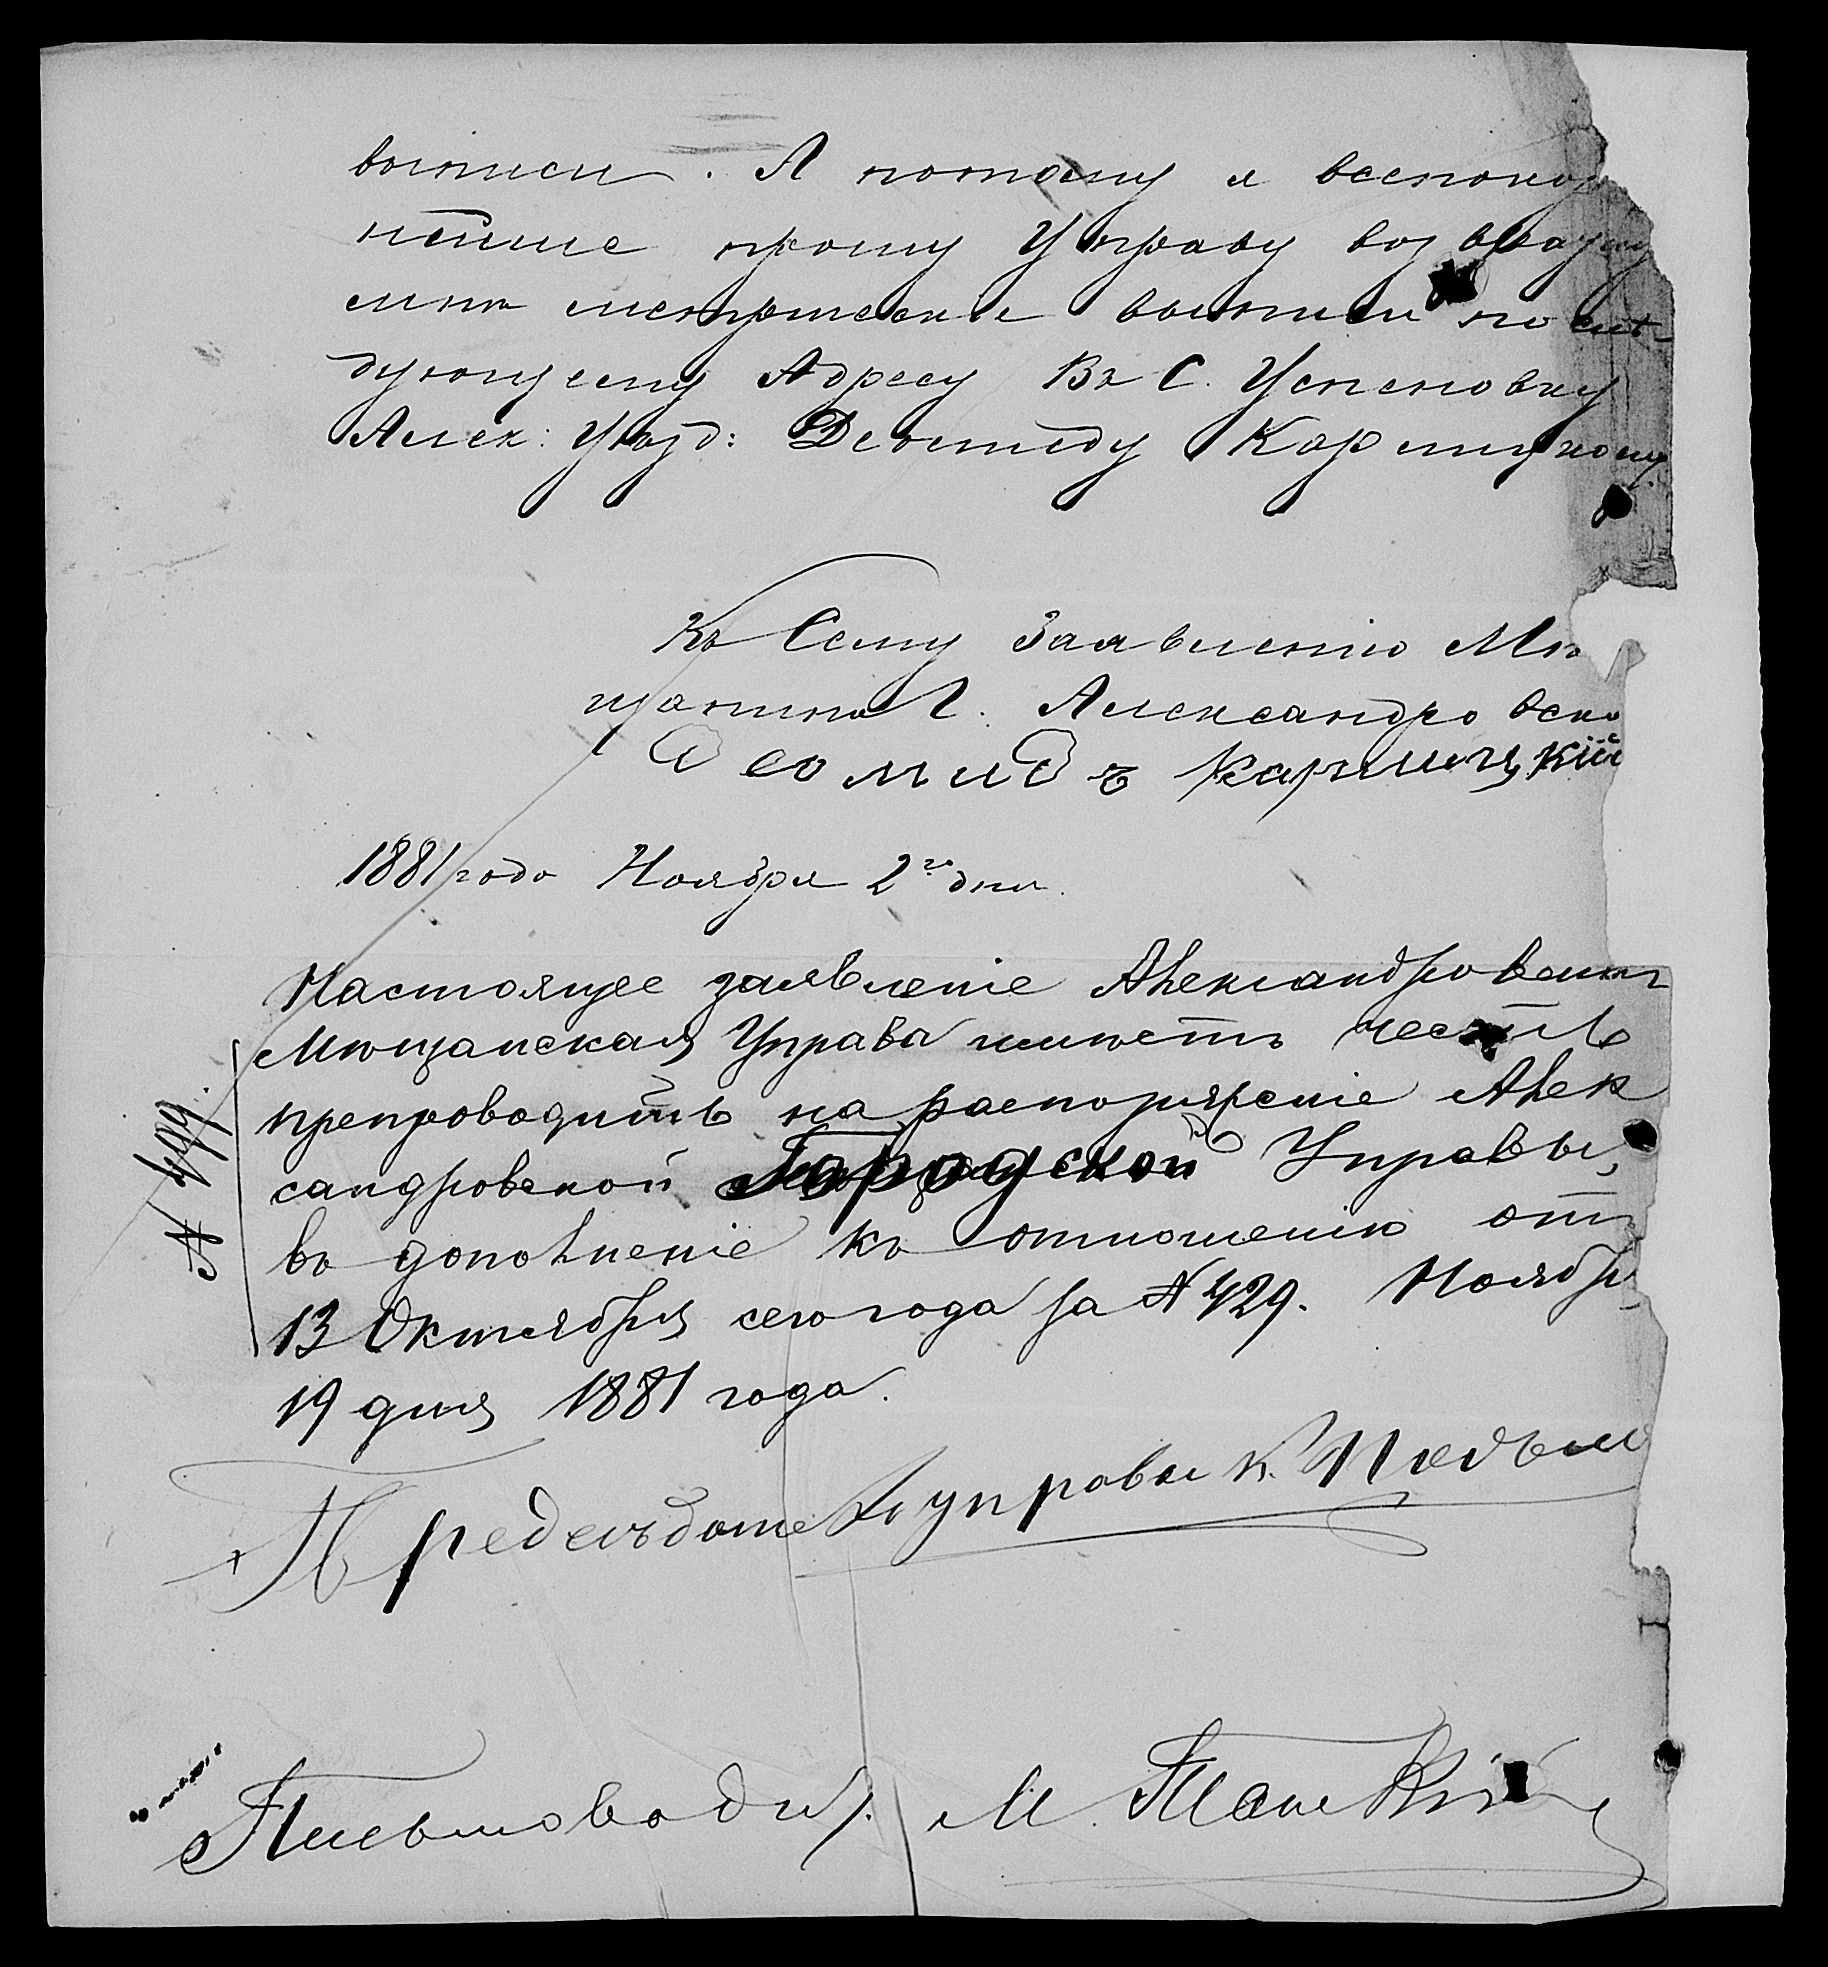 выписи. А потому я всепокор
нѣйше прошу Управу возвратит
мнѣ метрическія выписи по слѣ-
дующему Адресу Въ С. Успеновку
Алек: Уѣзд: Деомиду Кармицкому.
Къ Сему Заявленію Мѣ
щанинъ Г. Александровска
Деомидъ Кармицкій
1881 года Ноября 2го дня.
Настоящее заявленіе Александровская
Мѣщанская Управа имѣетъ честь
препроводить на распоряженіе Алек
сандровской Городской Управы,
въ дополненіе къ отношенію отъ
13 Октября сего года за № 429. Ноября
19 дня 1881 года.
Председатель управы К.
Письмоводит. М.